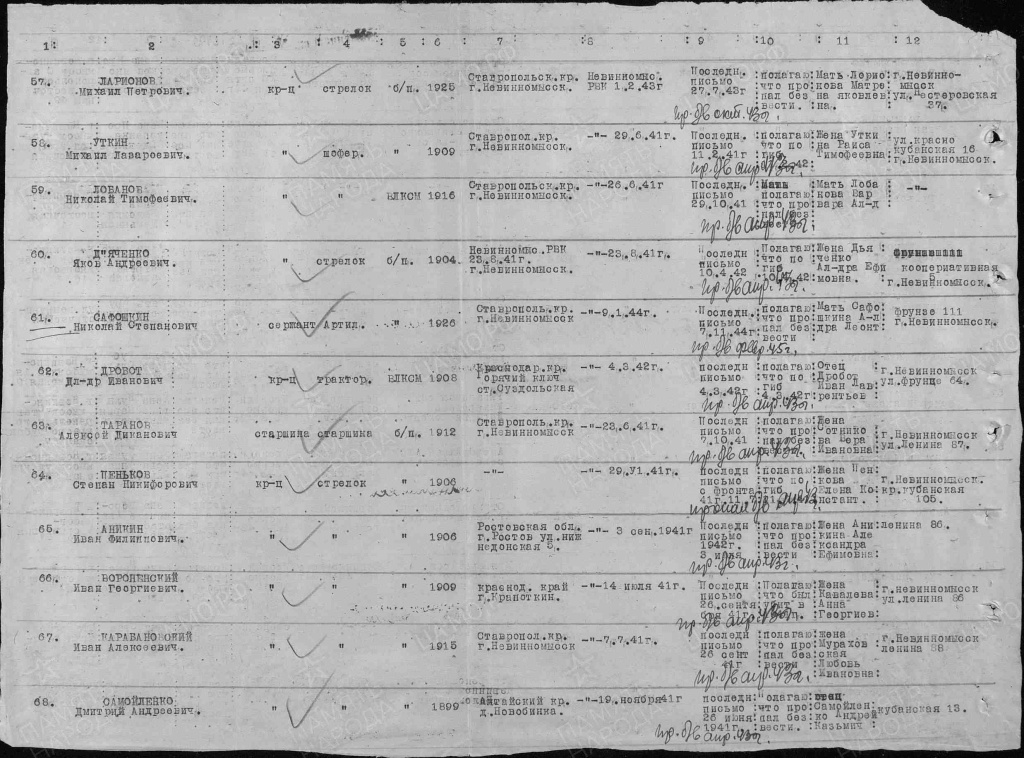 1: 2 : 3 : 4 : 5 : 6 : 7 : 8 : 9 : 10 : 11 : 12
57. ЛАРИОНОВ Михаил Петрович. кр-ц стрелок б/п. 1925
Ставропольск.кр. г.Невинномысск.
Невинномыс. РВК 1.2.43г
Последн. письмо 27.7.43г
полагаю что про пал без вести.
Мать Ларио нова Матре на яковлев на.
г.Невинно- мысск ул.Пестеровская 37.
пр. б/в окт. 43г.
58. УТКИН Михаил Лазаревич. " шофер. " 1909
Ставропол.кр. г.Невинномысск.
-"- 29.6.41г.
Последн. письмо 11.2.41г
полагаю что по гиб
Жена Утки на Раиса Тимофеевна
ул.красно кубанская 16 г.Невинномысск.
пр. б/в апр. 43г.
59. ЛОБАНОВ Николай Тимофеевич. " " ВЛКСМ 1916
Ставропольск.кр. г.Невинномысск.
-"-26.6.41г
Последн. письмо 29.10.41
полагаю что про пал без
Мать Лоба нова Вар вара Ал-д
-"-
пр. б/в апр. 43г.
60. Д"ЯЧЕНКО Яков Андреевич. " стрелок б/п. 1904
Невинномыс.РВК 23.8.41г. г.Невинномысск.
-"-23.8.41г
Последн письмо 10.4.42
Полагаю что по гиб
Жена Дья ченко Ал-дра Ефи мовна.
кооперативная 5 г.Невинномысск.
пр. б/в апр. 43г.
61. САФОШКИН Николай Степанович сержант Артил. " 1926
Ставропольск.кр. г.Невинномысск.
-"-9.1.44г
Последн. письмо 7.11.44г
полагаю что про пал без вести
Мать Сафо шкина А-л дра Леонт
фрунзе 111 г.Невинномысск.
пр. б/в фев. 45г.
62. ДРОБОТ Дл-др Иванович кр-ц трактор. ВЛКСМ 1908
Краснодар.кр. Горячий ключ ст.Суздольская
-"- 4.3.42г.
последн письмо 4.3.42г
полагаю что по гиб 4.3.42г
Отец Дробот Иван Лав рентьев
г.Невинномысск ул.Фрунце 64.
пр. б/в апр. 43г.
63. ТАРАНОВ Алексей Диканович старшина старшина б/п. 1912
Ставрополь.кр. г.Невинномысск.
-"-23.6.41г
Последн. письмо 7.10.41
полагаю что про пал без
Жена Сотнико ва Вера Ивановна
г.Невинномысск ул.Ленина 87.
пр. б/в апр. 43г.
64. ПЕНЬКОВ Степан Никифорович кр-ц стрелок " 1906
-"-
-"- 29.У1.41г.
последн письмо с фронта 41г.11.
полагаю что по гиб
Жена Пен кова Елена Ко нстант.
г.Невинномысск. кр.кубанская 105.
65. АНИКИН Иван Филиппович. " " " 1906
Ростовская обл. г.Ростов ул.ниж недонская 5.
-"- 3 сен.1941г
Последн письмо 1942г. 3 июля
полагаю что про пал без вести
Жена Ани кина Але ксандра Ефимовна
ленина 86.
пр. б/в апр. 43г.
66. ВОРОПЕНСКИЙ Иван Георгиевич. " " " 1909
краснод. край г.Крапоткин.
-"-14 июля 41г.
Последн письмо 26 сентя бря 41г
Полагаю что был убит в
Жена Кавалева Анна Георгиев
г.невинномысск ул.ленина 86
пр. б/в апр. 43г.
67. КАРАБАНОВСКИЙ Иван Алексеевич. " " " 1915
Ставропол.кр. г.Невинномысск
-"-7.7.41г.
последн письмо 26 сент 41г
полагаю что про пал без вести
жена Мурахов ская Любовь Ивановна
г.Невинномысск ленина 88
пр. б/в апр. 43г.
68. САМОЙЛЕНКО Дмитрий Андреевич. " " " 1899
Алтайский кр. д.Новобинка.
-"-19.ноября41г
последн письмо 26 июня 1941г.
полагаю что про пал без вести.
отец Самойлен ко Андрей Казьмич
кубанская 13.
пр. б/в апр. 43г.